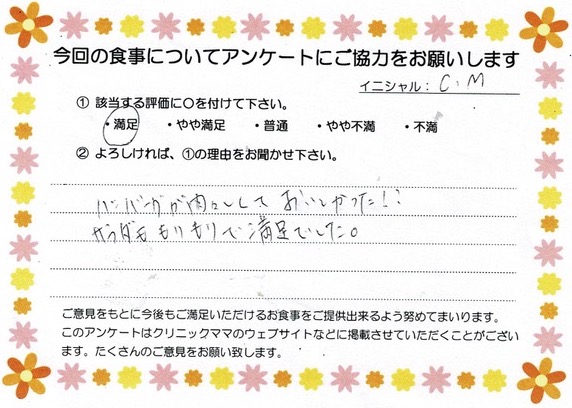 今回の食事についてアンケートにご協力をお願いします
イニシャル：C.M
① 該当する評価に○を付けて下さい。
・満足 ・やや満足 ・普通 ・やや不満 ・不満
② よろしければ、①の理由をお聞かせ下さい。
ハンバーグが肉々しくて おいしかった!!
サラダも もりもりで 満足でした。
ご意見をもとに今後もご満足いただけるお食事をご提供出来るよう努めてまいります。
このアンケートはクリニックママのウェブサイトなどに掲載させていただくことがござい
ます。たくさんのご意見をお願い致します。